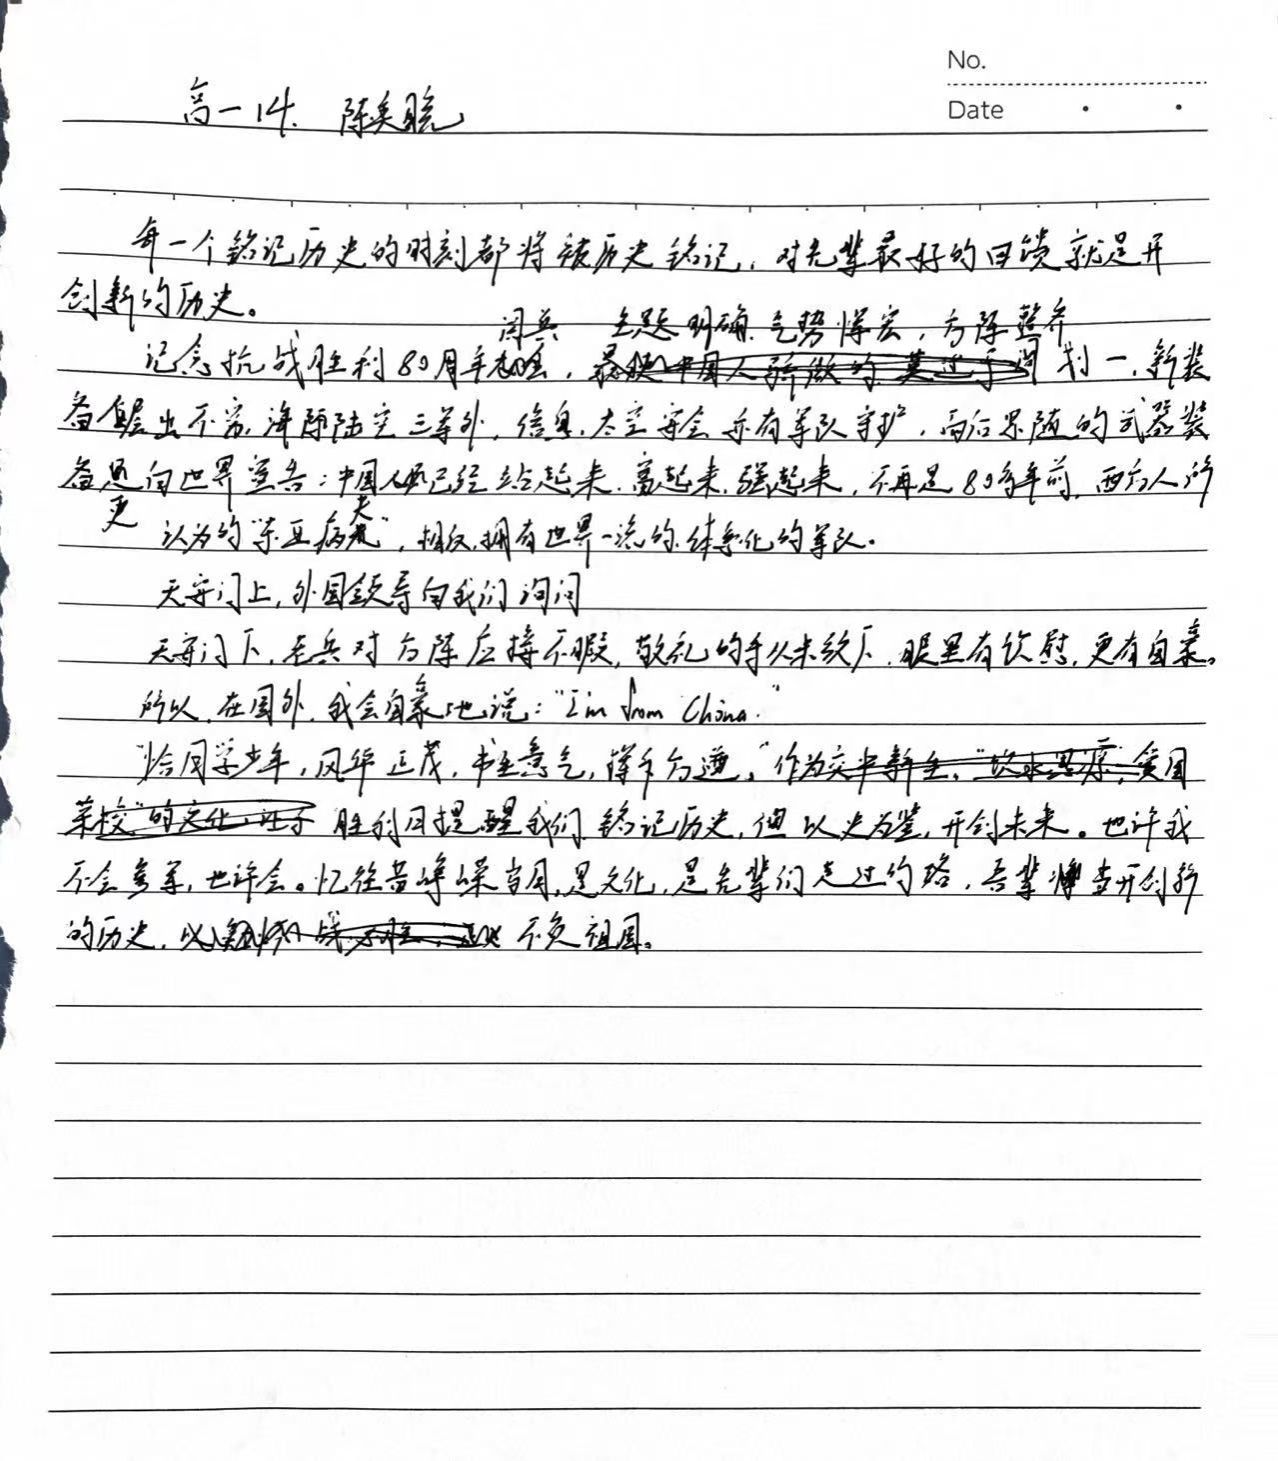 No.
Date
高一14. 陈奕晓
每一个铭记历史的时刻都将被历史铭记，对先辈最好的回馈就是开
创新的历史。
阅兵 主题明确、气势恢宏，方阵整齐
记念抗战胜利80周年 ，划一，新装
备层出不穷，海陆空三军外，信息、太空安全亦有军队守护，而后累随的武器装
备更向世界宣告：中国人民已经站起来、富起来、强起来，不再是80多年前，西方人所
认为的“东亚病夫”，相反，拥有世界一流的、体系化的军队。
天安门上，外国领导向我们询问
天安门下，老兵对方阵应接不暇，敬礼的手从未放下，眼里有欣慰，更有自豪。
所以，在国外，我会自豪地说：“I'm from China.”
“恰同学少年，风华正茂，书生意气，挥斥方遒。”作为
胜利日提醒我们铭记历史，但以史为鉴，开创未来。也许我
不会参军，也许会。忆往昔峥嵘岁月，是文化，是先辈们走过的路，吾辈当开创新
的历史，不负祖国。